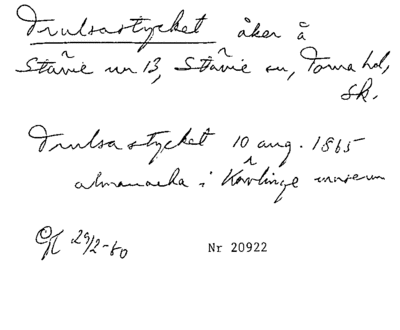 Trulsastycket åker å
Stävie nr 13, Stävie sn, Torna hd,
Sk.
Trulsa stycket 10 aug. 1865
almanacka i Kävlinge museum
29/2-80
Nr 20922